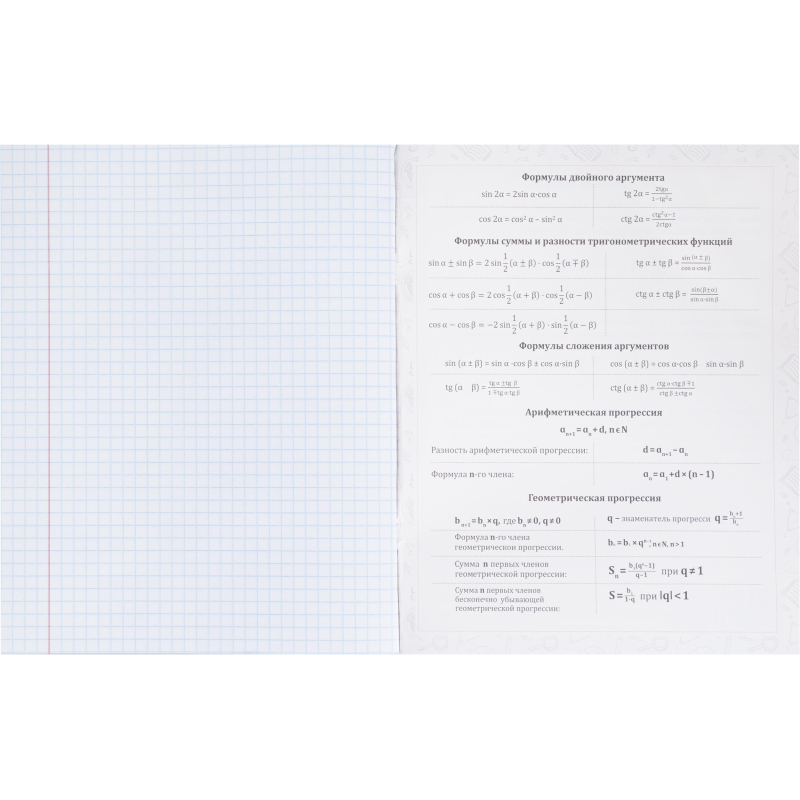 Формулы двойного аргумента
sin 2α = 2sin α·cos α tg 2α = 2tgα/1−tg²α
cos 2α = cos² α – sin² α ctg 2α = ctg²α−1/2ctgα
Формулы суммы и разности тригонометрических функций
sin α ± sin β = 2 sin 1/2 (α ± β) · cos 1/2 (α ∓ β) tg α ± tg β = sin (α ± β)/cos α·cos β
cos α + cos β = 2 cos 1/2 (α + β) · cos 1/2 (α − β) ctg α ± ctg β = sin(β±α)/sin α·sin β
cos α − cos β = −2 sin 1/2 (α + β) · sin 1/2 (α − β)
Формулы сложения аргументов
sin (α ± β) = sin α ·cos β ± cos α·sin β cos (α ± β) = cos α·cos β sin α·sin β
tg (α β) = tg α ±tg β/1 ∓tg α·tg β ctg (α ± β) = ctg α·ctg β ∓1/ctg β ±ctg α
Арифметическая прогрессия
aₙ₊₁ = aₙ + d, n ϵ N
Разность арифметической прогрессии: d = aₙ₊₁ – aₙ
Формула n-го члена: aₙ = a₁ + d × (n – 1)
Геометрическая прогрессия
bₙ₊₁ = bₙ × q, где bₙ ≠ 0, q ≠ 0 q – знаменатель прогресси q = bₙ+1/bₙ
Формула n-го члена
геометрической прогрессии. × qⁿ⁻¹, n ϵ N, n > 1
Сумма n первых членов
геометрической прогрессии: Sₙ = b₁(qⁿ−1)/q−1 при q ≠ 1
Сумма n первых членов
бесконечно убывающей
геометрической прогрессии: S = b₁/1-q при |q| < 1